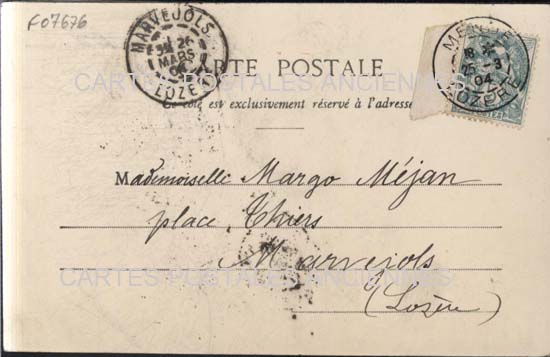 F07676
MARVEJOLS
26
MARS
04
LOZERE
MENDE
18 *
25 - 3
04
LOZERE
CARTE POSTALE
CARTES POSTALES ANCIENNES
Ce côté est exclusivement réservé à l'adresse
Mademoiselle Margo Méjan
place Thiers
Marvejols
CARTES POSTALES ANCIENNES
(Lozère)